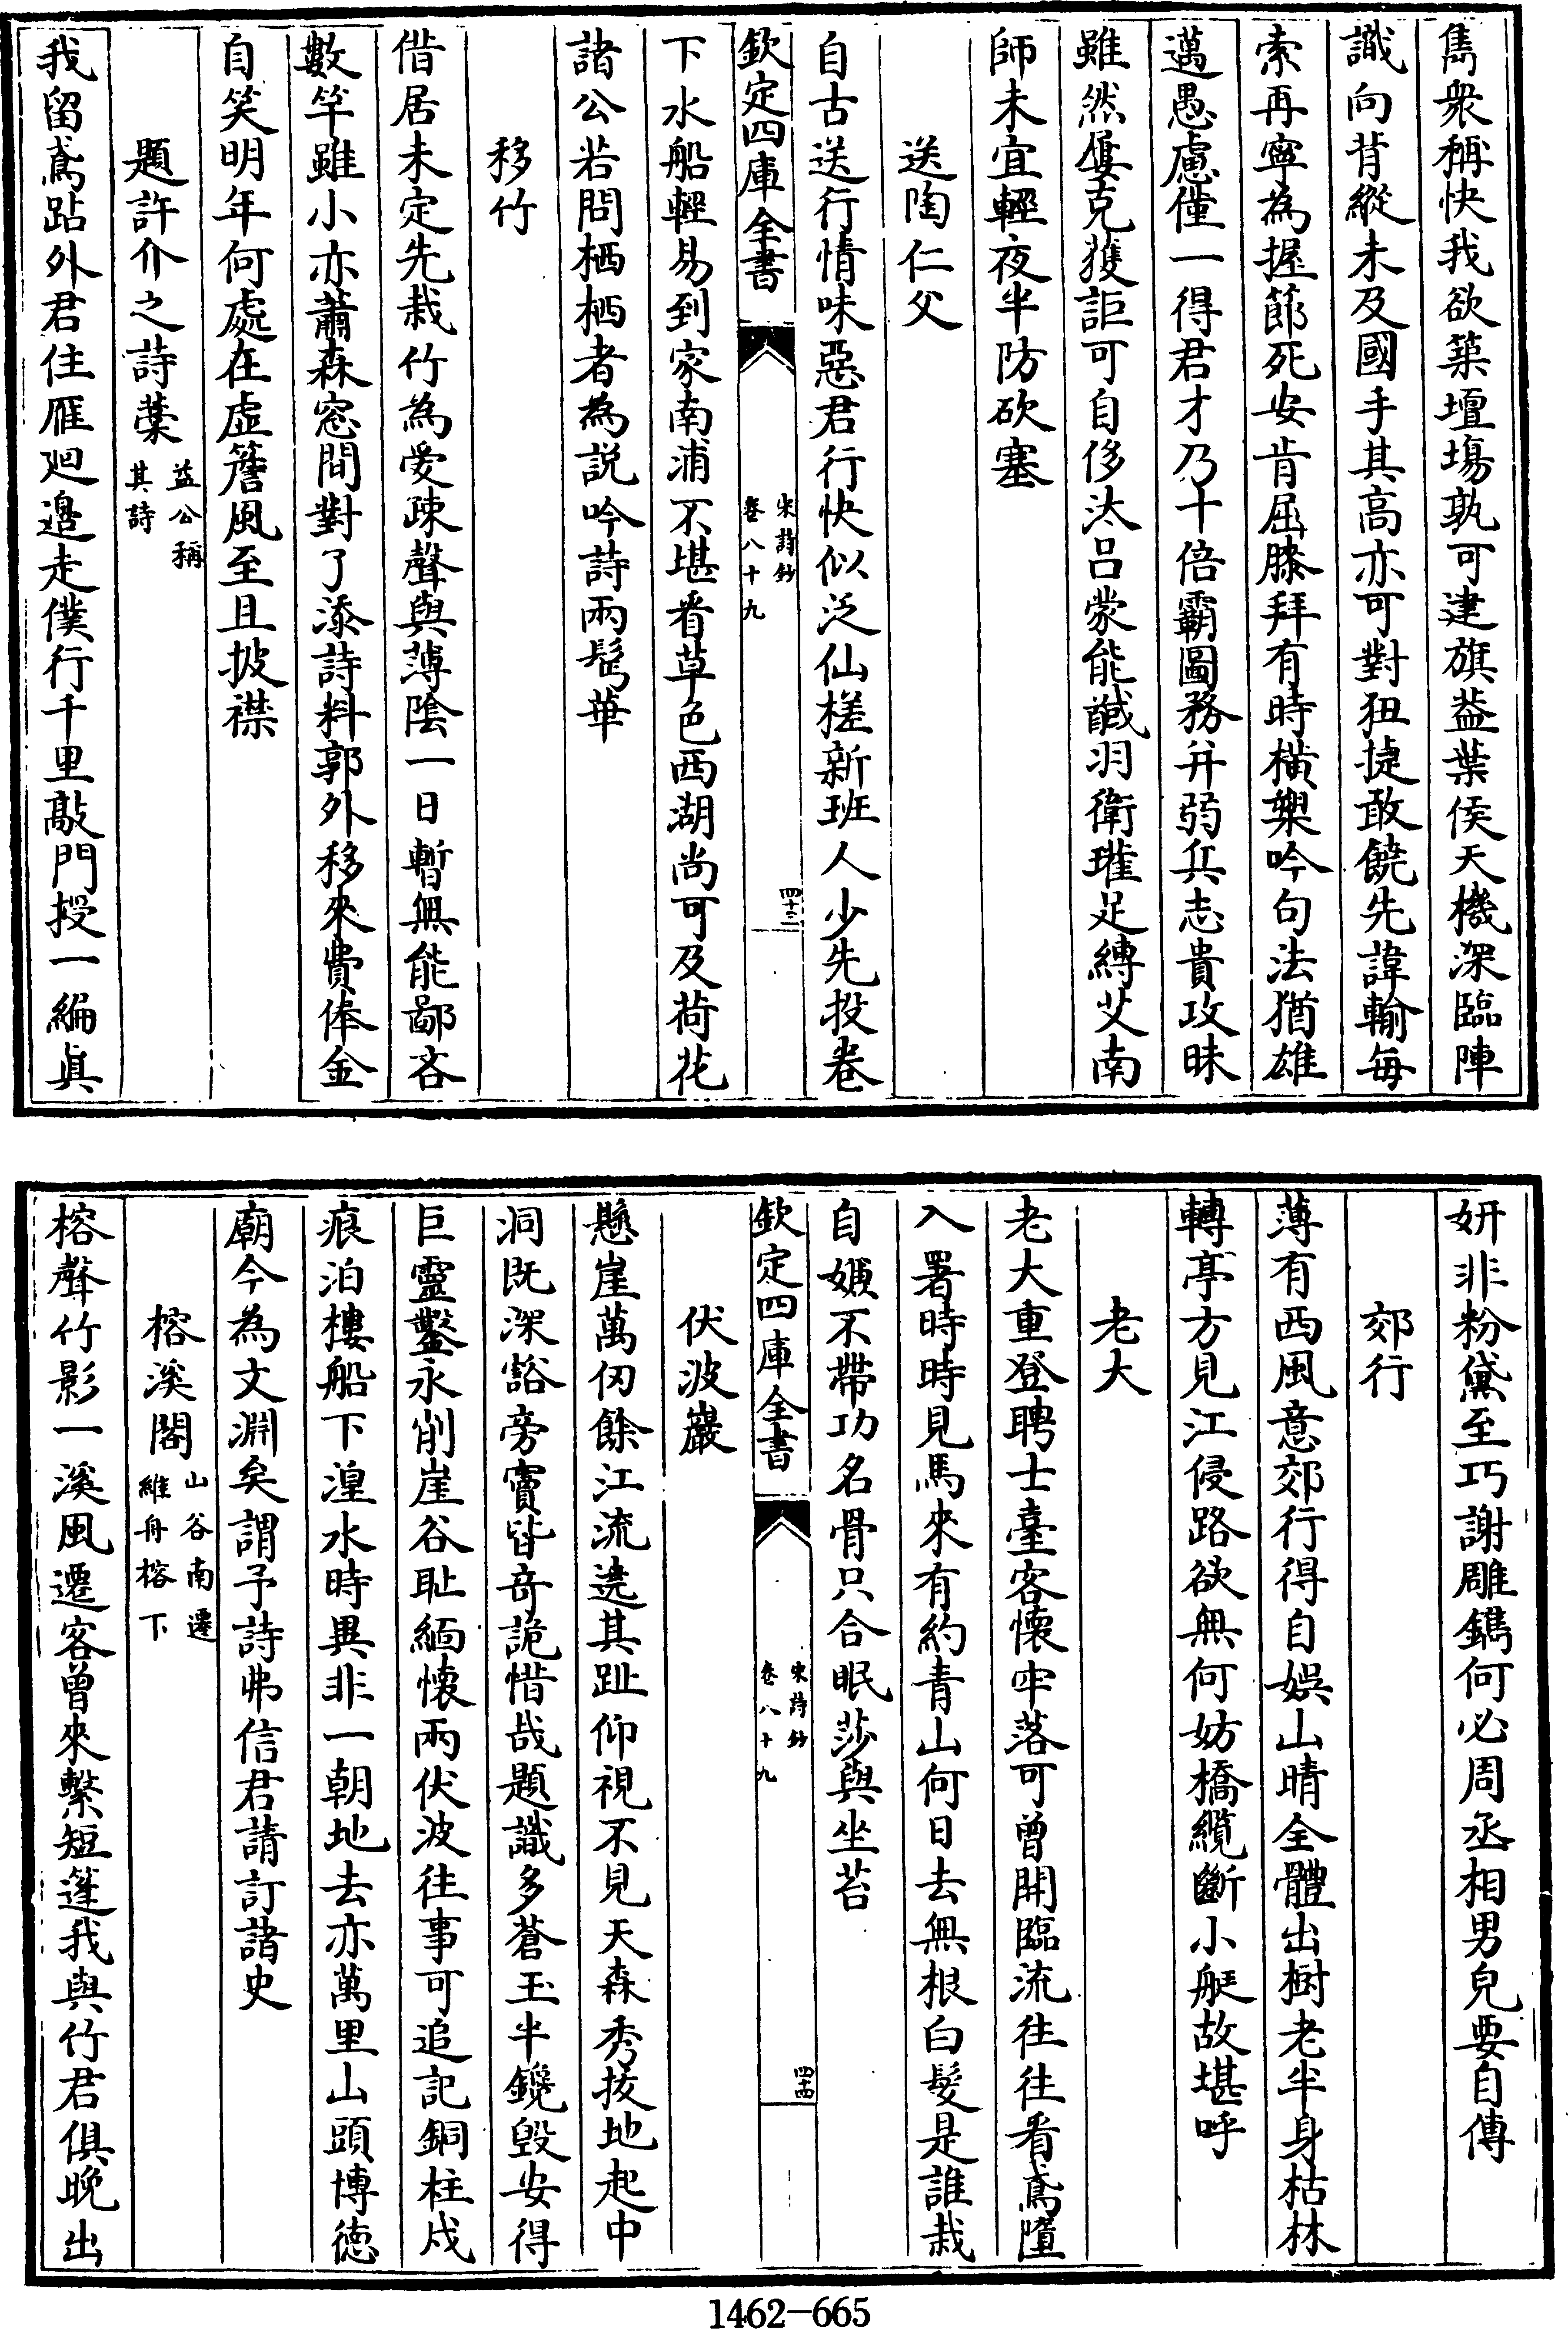 雋衆稱快我欲築壇塲孰可建旗葢葉侯天機深臨陣
識向背縱未及國手其高亦可對狃捷敢饒先諱輸每
索再寧為握節死安肯屈膝拜有時横槊吟句法猶雄
邁愚慮僅一得君才乃十倍霸圖務并弱兵志貴攻昧
雖然屢克獲詎可自侈汰吕蒙能馘羽衛瓘足縛艾南
師未宜輕夜半防砍塞
送陶仁父
自古送行情味惡君行快似泛仙槎新班人少先投卷
欽定四庫全書
宋詩鈔
卷八十九
四十三
下水船輕易到家南浦不堪看草色西湖尚可及荷花
諸公若問栖栖者為説吟詩兩鬂華
移竹
借居未定先栽竹為愛疎聲與薄隂一日暫無能鄙吝
數竿雖小亦蕭森窓間對了添詩料郭外移來費俸金
自笑明年何處在虚簷風至且披襟
題許介之詩藁
益公稱
其詩
我留鳶跕外君住雁廻邉走僕行千里敲門授一編真
妍非粉黛至巧謝雕鐫何必周丞相男兒要自傳
郊行
薄有西風意郊行得自娛山晴全體出樹老半身枯林
轉亭方見江侵路欲無何妨橋纜斷小艇故堪呼
老大
老大重登聘士臺客懷牢落可曾開臨流往往看鳶墮
入署時時見馬來有約青山何日去無根白髪是誰栽
自嫌不帶功名骨只合眠莎與坐苔
欽定四庫全書
宋詩鈔
卷八十九
四十四
伏波巖
懸崖萬仞餘江流遶其趾仰視不見天森秀拔地起中
洞既深豁旁竇皆竒詭惜哉題識多蒼玉半鑱毁安得
巨靈鑿永削崖谷耻緬懷兩伏波往事可追記銅柱戍
痕泊樓船下湟水時異非一朝地去亦萬里山頭博徳
廟今為文淵矣謂予詩弗信君請訂諸史
榕溪閣
山谷南遷
維舟榕下
榕聲竹影一溪風遷客曾來繫短篷我與竹君俱晚出
1462-665